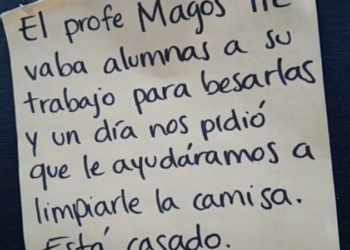 El profe Magos lle
vaba alumnas a su
trabajo para besarlas
y un día nos pidió
que le ayudáramos a
limpiarle la camisa.
Está casado.